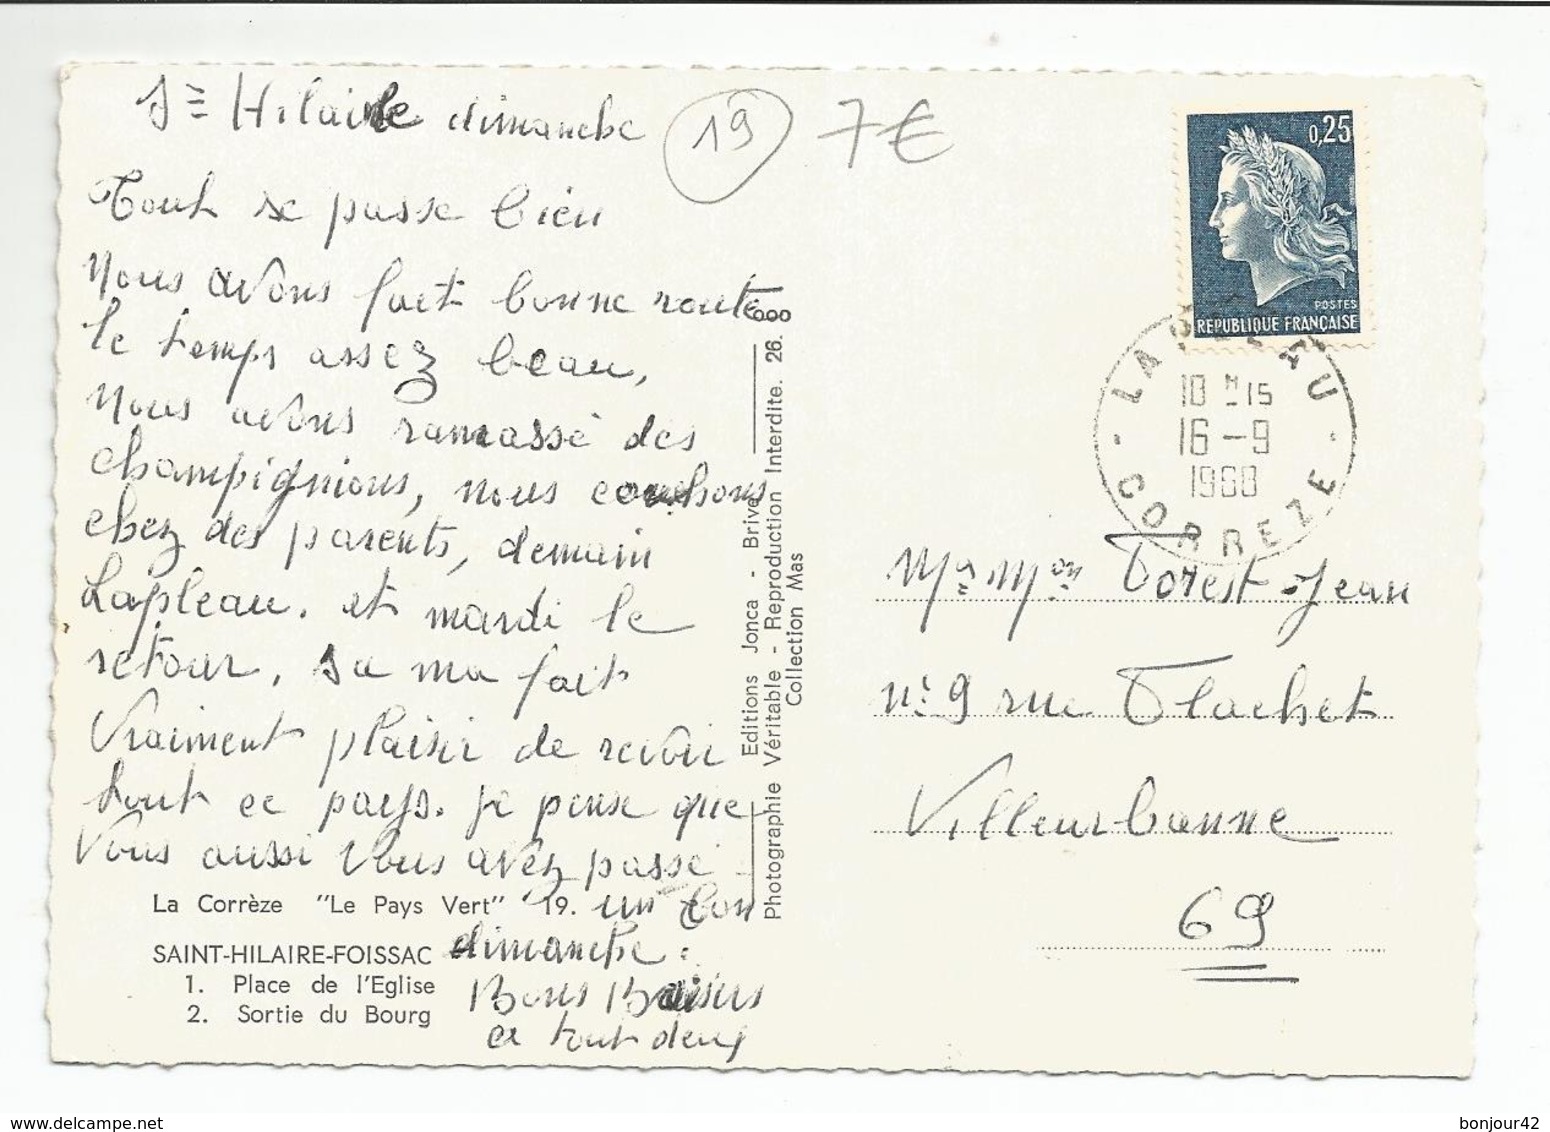 Ste Hilaire dimanche
19
7€
Tout se passe bien
Nous avons fait bonne route
le temps assez beau,
Nous avons ramassé des
champignions, nous couchons
chez des parents, demain
Lapleau. et mardi le
retour, sa ma fait
vraiment plaisir de revoir
tout ce pays. je pense que
Vous aussi vous avez passé
un bon
dimanche.
Bons Baisers
a tout deux
La Corrèze "Le Pays Vert" 19.
SAINT-HILAIRE-FOISSAC
1. Place de l'Eglise
2. Sortie du Bourg
Editions Jonca - Brive
Photographie Véritable - Reproduction Interdite. 26.
Collection Mas
0,25
POSTES
REPUBLIQUE FRANÇAISE
10 H 15
16 - 9
1968
CORREZE
Mr Mme Forest Jean
n: 9 rue Flachet
Villeurbanne
69
www.delcampe.net
bonjour42